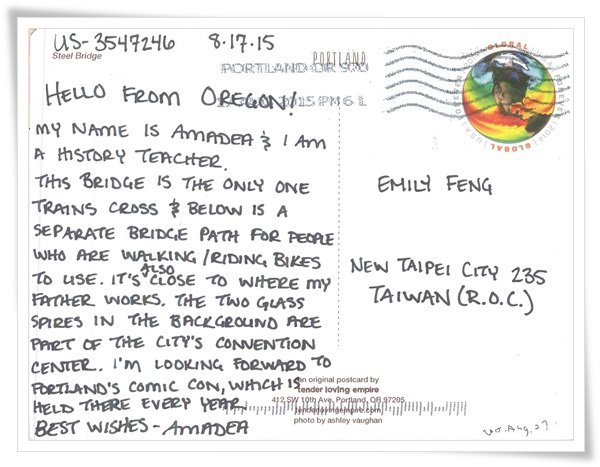 US-3547246 8.17.15
Steel Bridge
PORTLAND
PORTLAND OR 970
2015 PM 6 L
GLOBAL
FOREVER
USA
2014
GLOBAL
HELLO FROM OREGON!
MY NAME IS AMADEA & I AM
A HISTORY TEACHER.
THIS BRIDGE IS THE ONLY ONE
TRAINS CROSS & BELOW IS A
SEPARATE BRIDGE PATH FOR PEOPLE
WHO ARE WALKING/RIDING BIKES
TO USE. IT'S ALSO CLOSE TO WHERE MY
FATHER WORKS. THE TWO GLASS
SPIRES IN THE BACKGROUND ARE
PART OF THE CITY'S CONVENTION
CENTER. I'M LOOKING FORWARD TO
PORTLAND'S COMIC CON, WHICH IS
HELD THERE EVERY YEAR.
BEST WISHES - AMADEA
EMILY FENG
NEW TAIPEI CITY 235
TAIWAN (R.O.C.)
an original postcard by
tender loving empire
412 SW 10th Ave, Portland, OR 97205
tenderlovingempire.com
photo by ashley vaughan
Aug. 27